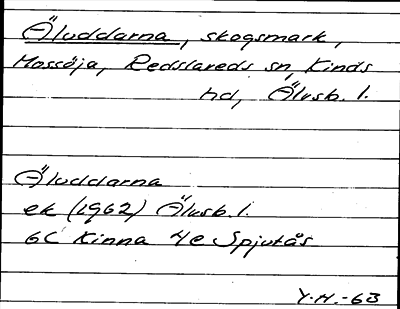 Äluddarna, skogsmark,
Mossöja, Redslareds sn, Kinds
hd, Älvsb. l.
Äluddarna
ek (1962) Älvsb. l.
6C Kinna 4e Spjutås
Y.H.-63